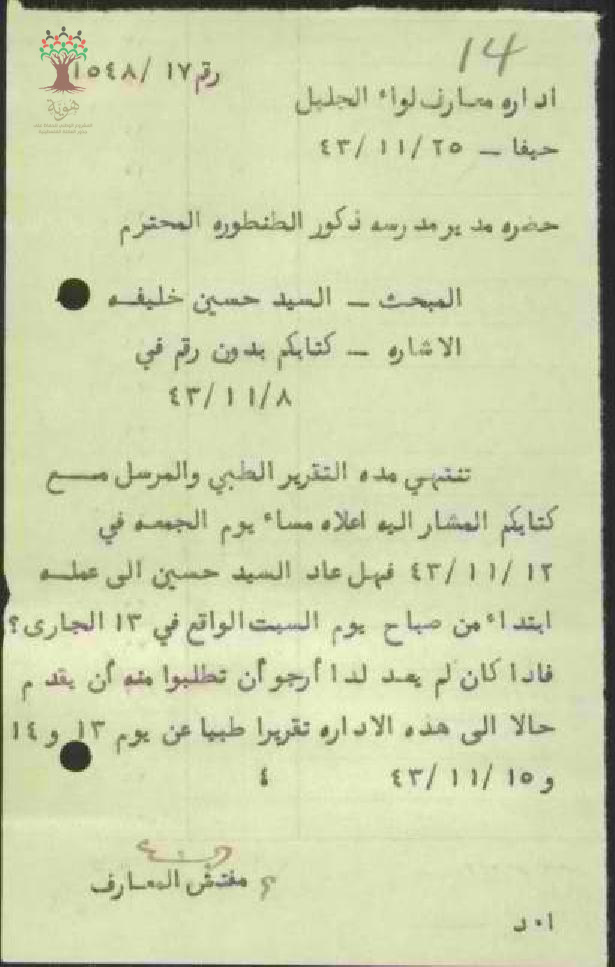 14
رقم ١٧/ ١٥٤٨
هوية
اداره معارف لواء الجليل
حيفا — ٢٥/ ١١/ ٤٣
حضره مدير مدرسه ذكور الطنطوره المحترم
المبحث — السيد حسين خليفه
الاشاره — كتابكم بدون رقم في
٨/ ١١/ ٤٣
تنتهي مده التقرير الطبي والمرسل مع
كتابكم المشار اليه اعلاه مساء يوم الجمعه في
١٢/ ١١/ ٤٣ فهل عاد السيد حسين الى عمله
ابتداء من صباح يوم السبت الواقع في ١٣ الجارى؟
فاذا كان لم يعد لذا أرجو أن تطلبوا منه أن يقدم
حالا الى هذه الاداره تقريرا طبيا عن يوم ١٣ و ١٤
و ١٥/ ١١/ ٤٣ ٤
مفتش المعارف
ا٠د